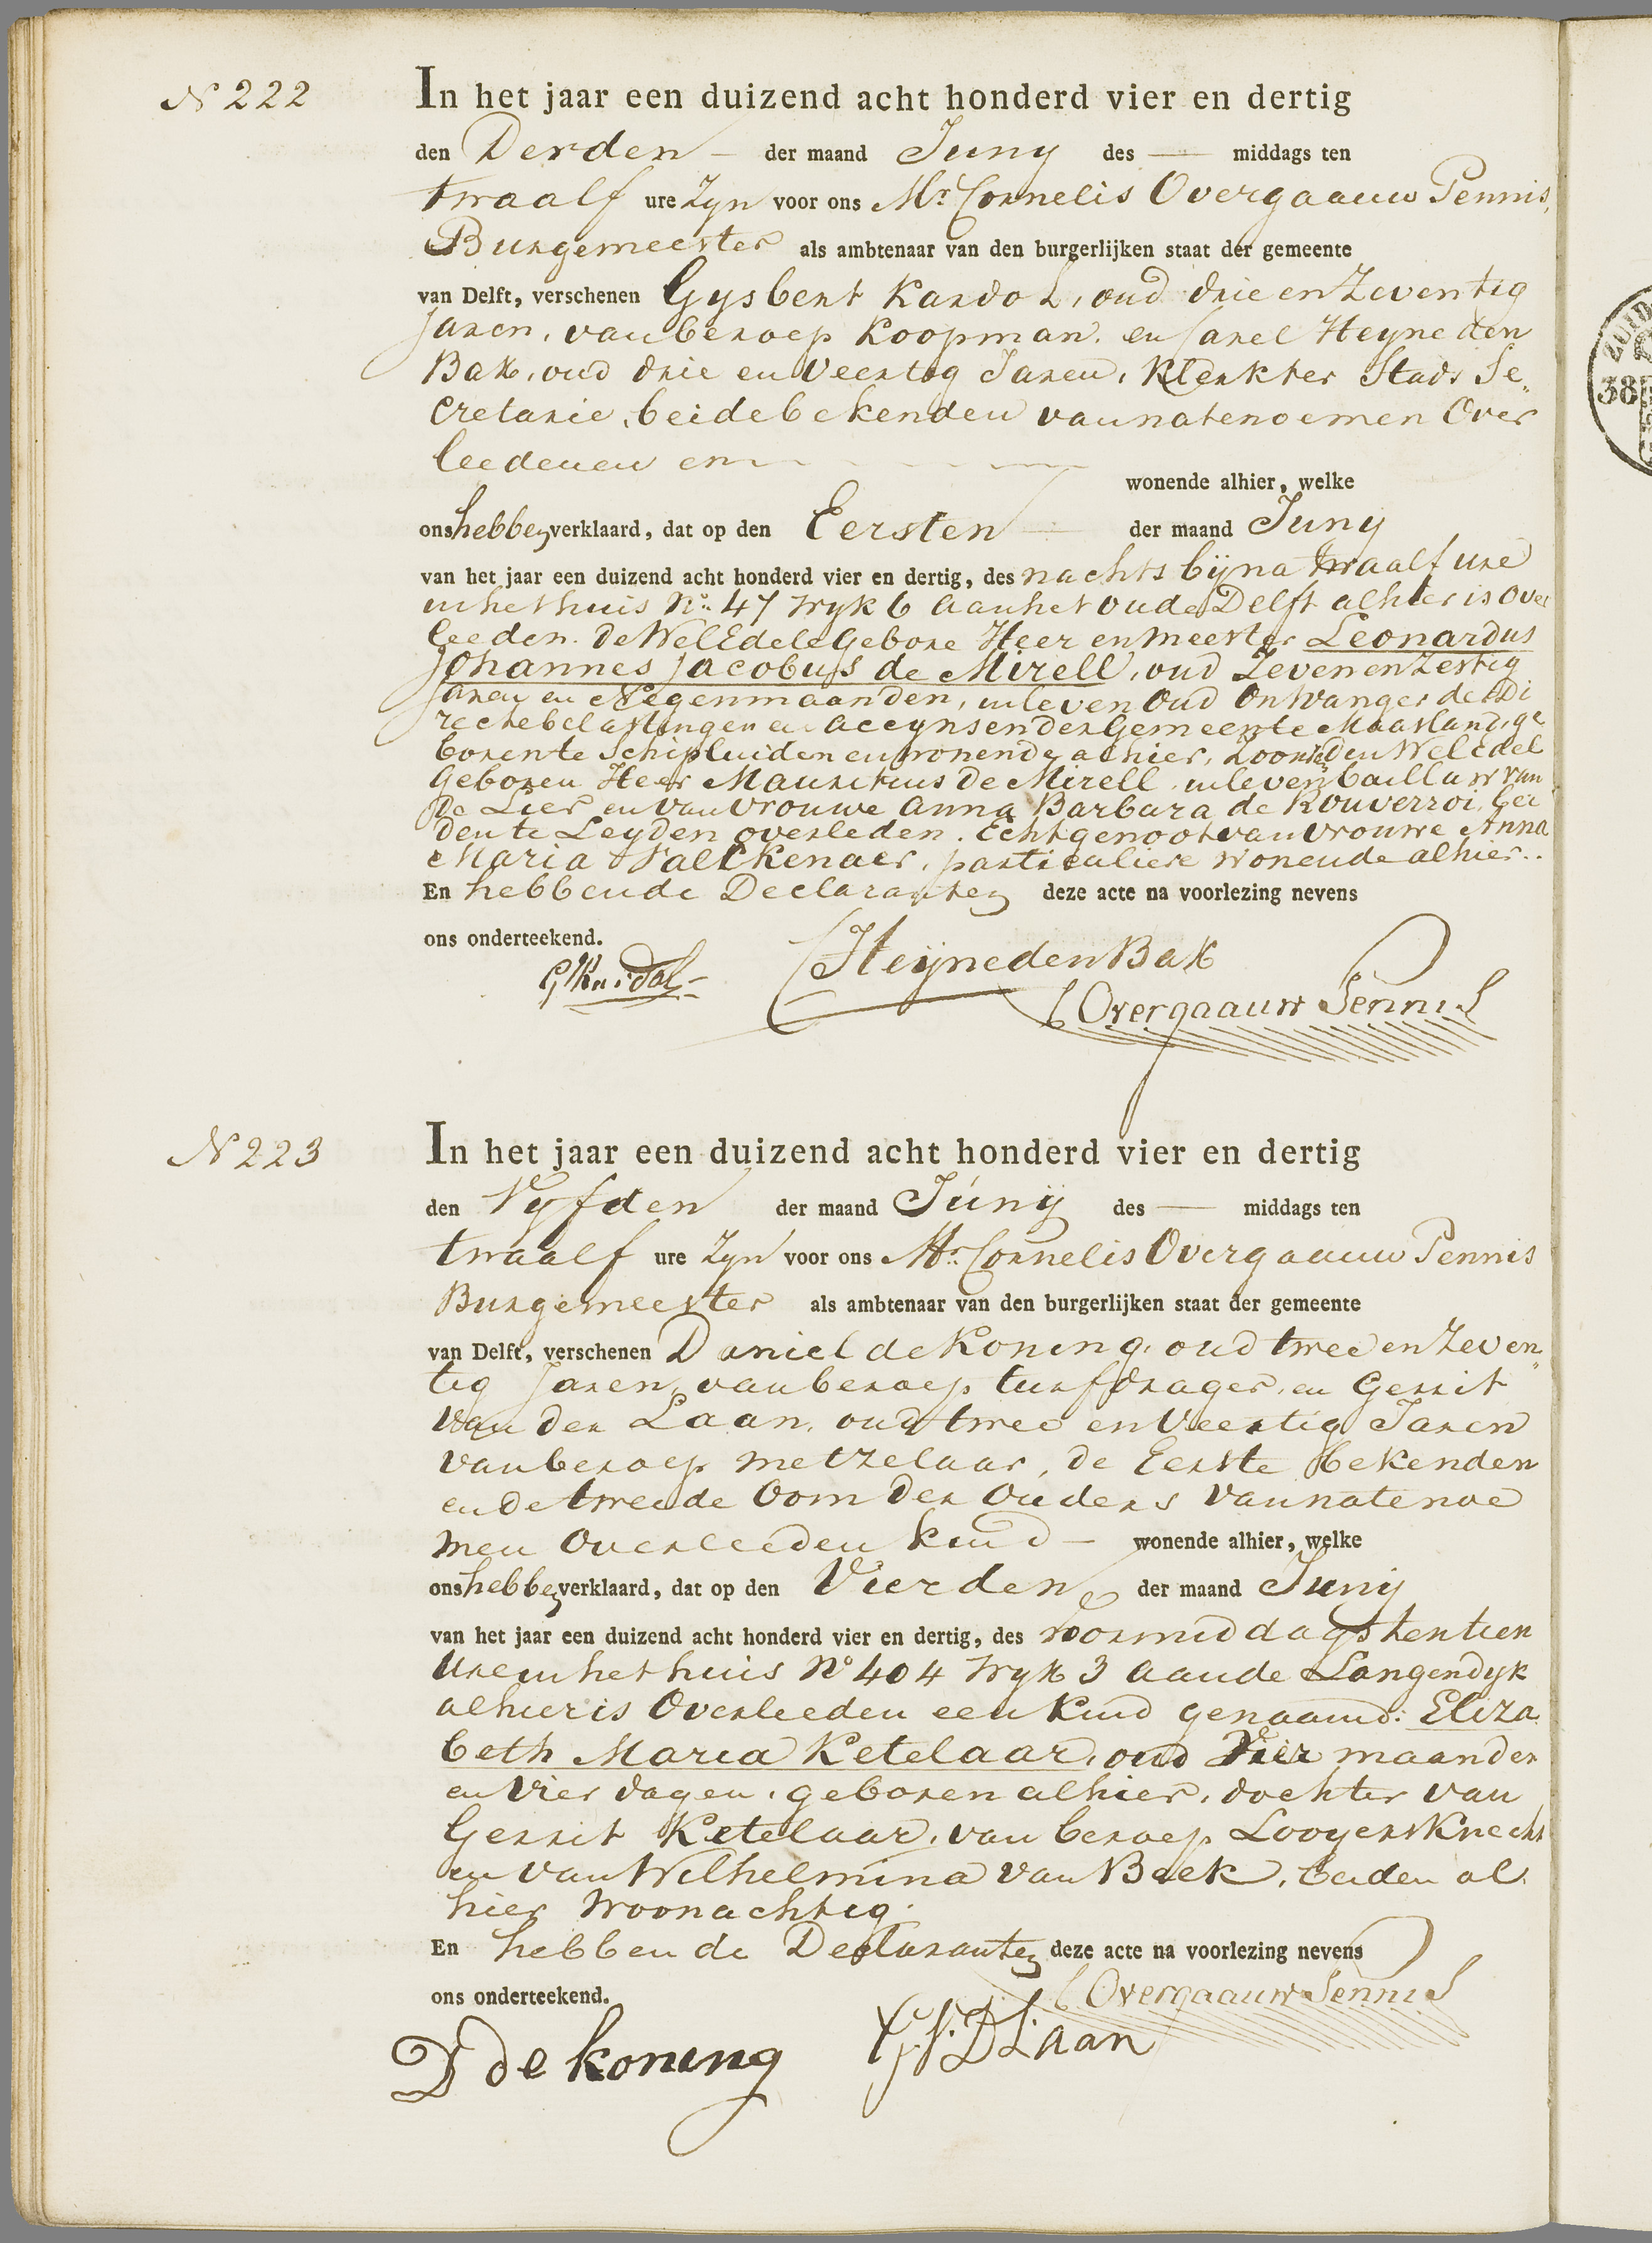 N 222
In het jaar een duizend acht honderd vier en dertig
den Derden — der maand Juny des — middags ten
twaalf ure Zyn voor ons Mr. Cornelis Overgaauw Pennis,
Burgemeester als ambtenaar van den burgerlijken staat der gemeente
van Delft, verschenen Gysbert Kardol, oud drie en Zeventig
Jaren, van beroep Koopman, en Carel Heyne den
Bak, oud drie en Veertig Jaren, Klerk ter Stads Se„
cretarie, beide bekenden van natenoemen Over
leedenen en
wonende alhier, welke
ons hebben verklaard, dat op den Eersten — der maand Juny
van het jaar een duizend acht honderd vier en dertig, des nachts byna twaalf ure
in het huis No. 47 Wyk 6 aan het oude Delft alhier is Over
leeden. de WelEdele Gebore Heer en meester Leonardus
Johannes Jacobus de Mirell, oud Zeven en Zestig
Jaren en Negen maanden, in leven Oud Ontvanger der Di
recte belastingen en accynsen der Gemeente Maasland, ge
boren te Schipluiden en wonende alhier, Zoon van den Wel Edel
Geboren Heer Mauritius De Mirell in leven bailluw van
De Lier en van vrouwe Anna Barbara de Rouverroi, bei
den te Leyden overleden. Echtgenoot van vrouwe Anna
Maria Valckenaer, particuliere wonende alhier.
En hebbende Declaranten deze acte na voorlezing nevens
ons onderteekend.
G Kardol
C Heyne den Bak
C Overgaauw Pennis
N 223
In het jaar een duizend acht honderd vier en dertig
den Vyfden der maand Júnij des — middags ten
twaalf ure Zyn voor ons Mr. Cornelis Overgaauw Pennis
Burgemeester als ambtenaar van den burgerlijken staat der gemeente
van Delft, verschenen Daniel de Koning, oud twee en Zeven„
tig Jaren, van beroep turfdrager, en Gerrit
van der Laan, oud twee en Veertig Jaren
van beroep metzelaar, de Eerste bekenden
en de tweede Oom der Ouders van natenoe
men Overleeden kind — wonende alhier, welke
ons hebben verklaard, dat op den Vierden der maand Junij
van het jaar een duizend acht honderd vier en dertig, des voormiddags ten tien
Ure in het huis No 404 Wyk 3 aan de Langendyk
alhier is Overleeden een Kind genaamd: Eliza
beth Maria Ketelaar, oud Vier maanden
en Vier dagen, geboren alhier, dochter van
Gerrit Ketelaar, van beroep Looyersknecht
en van Wilhelmina van Beek, beiden al
hier Woonachtig.
En hebbende Declaranten deze acte na voorlezing nevens
ons onderteekend.
C Overgaauw Pennis
D de koning
G. V. D. Laan
38